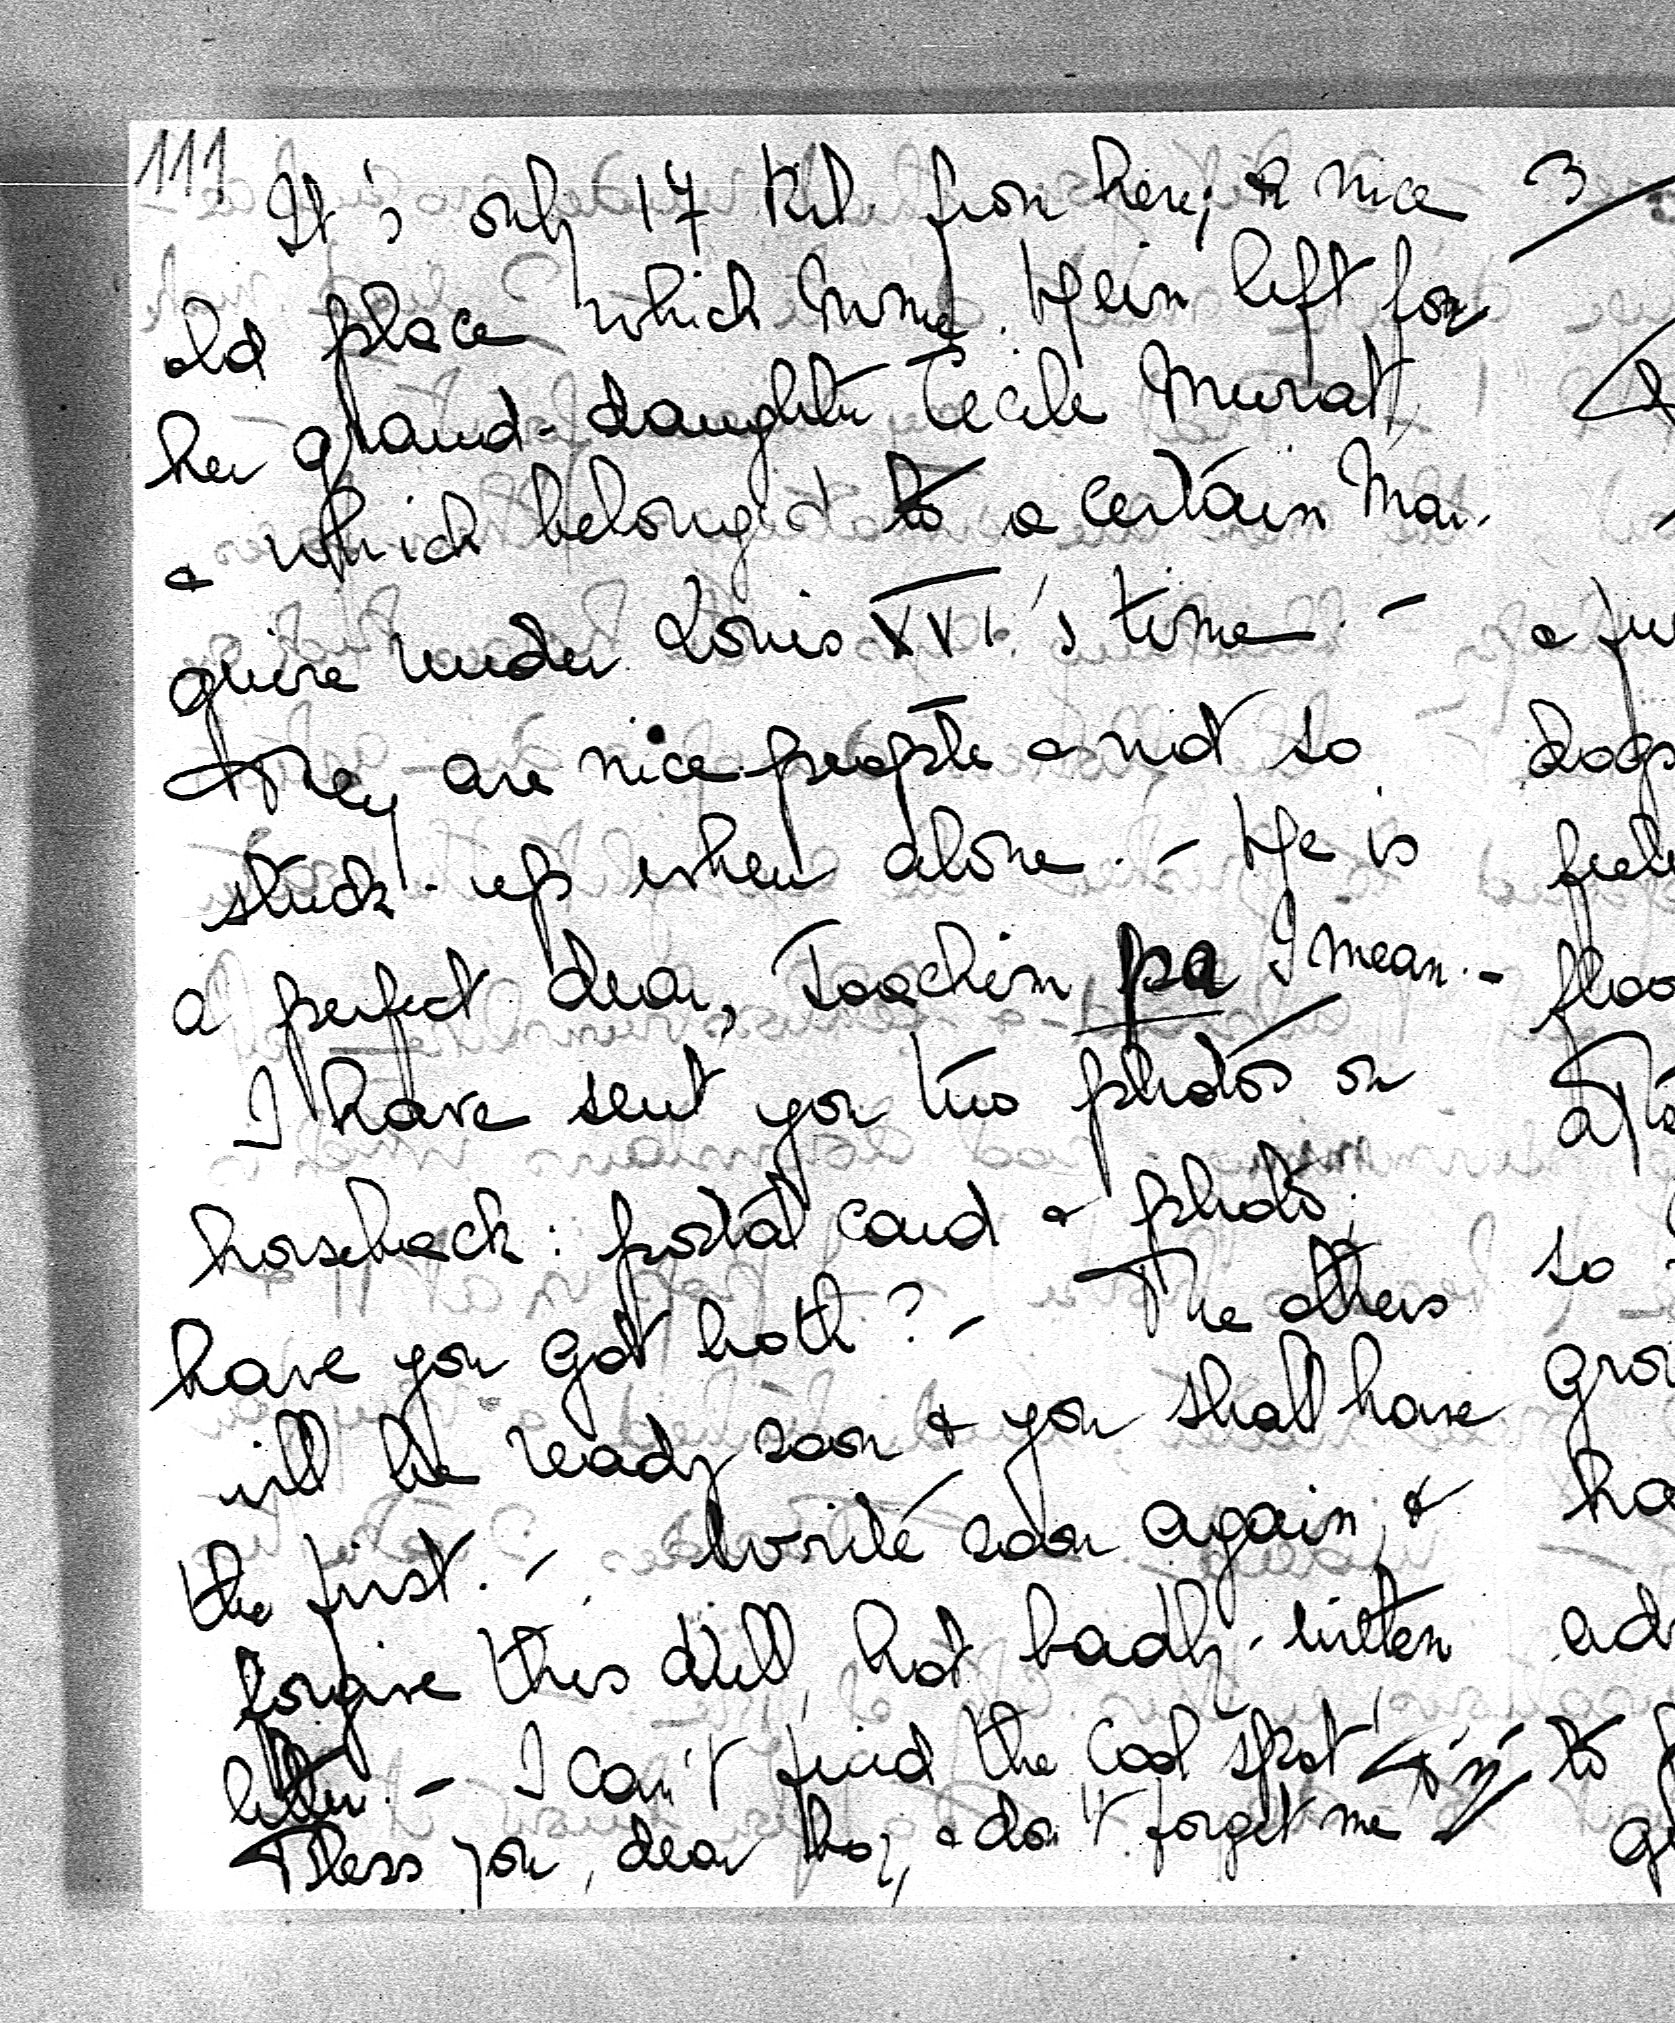 111
It's only 17 Kil. from here; a nice
old place which Mme. Hein left for
her grand-daughter Cécile Murat,
& which belong'd to a certain Mar-
quise under Louis XVI's time. -
They are nice people & not so
stuck-up when alone. - He is
a perfect dear, Joachim pa I mean. -
I have sent you two photos on
horseback: postal card & photo;
have you got both? - The others
will be ready soon & you shall have
the first. - Write soon again, &
forgive this dull, hot badly-written
letter. - I can't find the cool spot!
Bless you, dear boy, & don't forget me
3
& fu
dogs
floo
so
gro
ha
ad
to